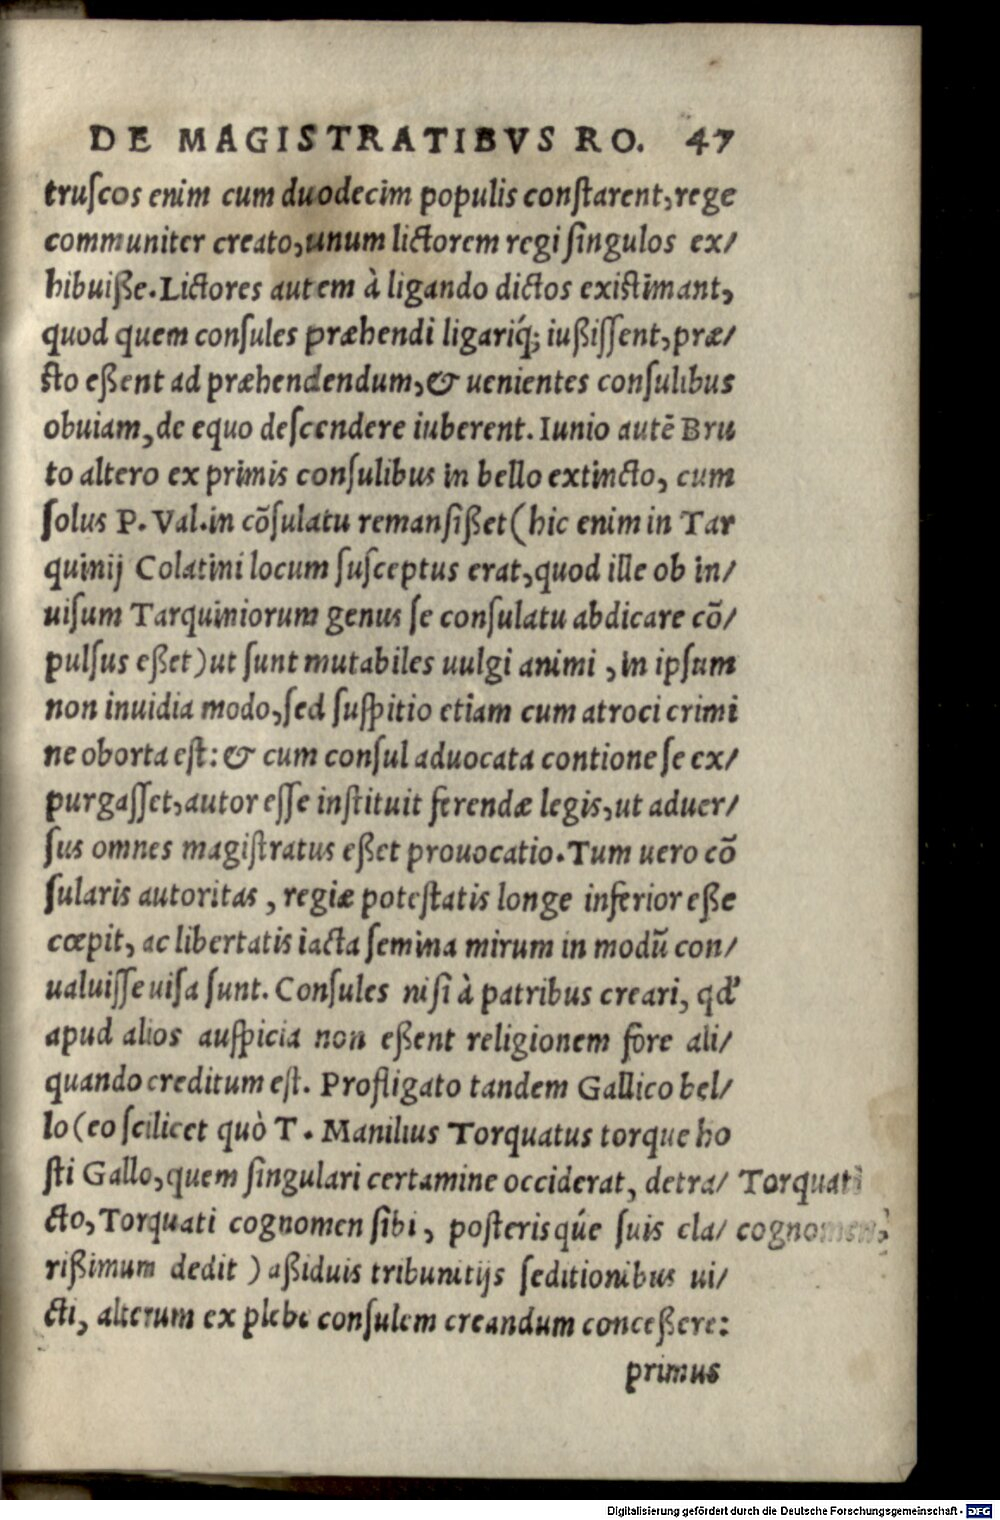 DE MAGISTRATIBVS RO. 47
truſcos enim cum duodecim populis conſtarent, rege
communiter creato, unum lictorem regi ſingulos ex/
hibuiße. Lictores autem à ligando dictos existimant,
quod quem conſules præhendi ligariq́; iußiſſent, præ/
ſto eßent ad præhendendum, & uenientes conſulibus
obuiam, de equo deſcendere iuberent. Iunio autē Bru
to altero ex primis conſulibus in bello extincto, cum
ſolus P. Val. in cōſulatu remanſißet (hic enim in Tar
quinij Colatini locum ſuſceptus erat, quod ille ob in/
uiſum Tarquiniorum genus ſe conſulatu abdicare cō/
pulſus eßet) ut ſunt mutabiles uulgi animi, in ipſum
non inuidia modo, ſed ſuſpitio etiam cum atroci crimi
ne oborta eſt: & cum conſul aduocata contione ſe ex/
purgaſſet, autor eſſe inſtituit ferendæ legis, ut aduer/
ſus omnes magiſtratus eßet prouocatio. Tum uero cō
ſularis autoritas, regiæ poteſtatis longe inferior eße
cœpit, ac libertatis iacta ſemina mirum in modū con/
ualuiſſe uiſa ſunt. Conſules niſi à patribus creari, qd'
apud alios auſpicia non eßent religionem fore ali/
quando creditum eſt. Profligato tandem Gallico bel/
lo (eo ſcilicet quò T. Manlius Torquatus torque ho
ſti Gallo, quem ſingulari certamine occiderat, detra/ Torquati
cto, Torquati cognomen ſibi, poſterisq́ue ſuis cla/ cognomen
rißimum dedit) aßiduis tribunitijs ſeditionibus ui/
cti, alterum ex plebe conſulem creandum conceßere:
primus
Digitalisierung gefördert durch die Deutsche Forschungsgemeinschaft - DFG